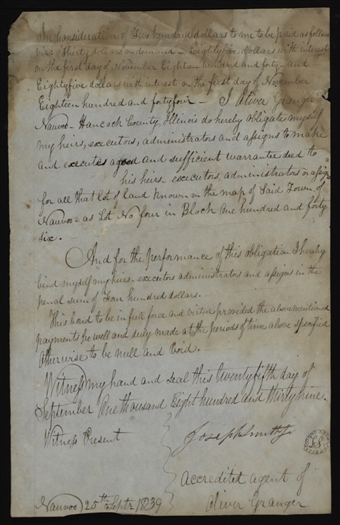 In consideration of Two hundred dollars to me to be paid as follows
viz: Thirty dollars on demand — Eightyfive dollars with interest
on the first day of November Eighteen hundred and forty and
Eightyfive dollars with interest on the first day of November
Eighteen hundred and fortyfour — I Oliver Granger
Nauvoo Hancock County Illinois do hereby obligate myself
my heirs, executors, administrators and assigns to make
and execute a good and sufficient warrantee deed to
his heirs executors administrators or assigns
for all that lot of land known in the map of Said Town of
Nauvoo as Lot No four in Block One hundred and fifty
six.
And for the performance of this obligation I hereby
bind myself my heirs, executors administrators and assigns in the
penal sum of Four hundred dollars.
This bond to be in full force and virtue provided the above mentioned
payments be well and duly made at the periods of time above specified
Otherwise to be null and Void.
Witness my hand and seal this twentyfifth day of
September One thousand Eight hundred and thirty nine.
Witness Present
Joseph Smith
Accredited agent of
Oliver Granger
Nauvoo 25th Septr 1839